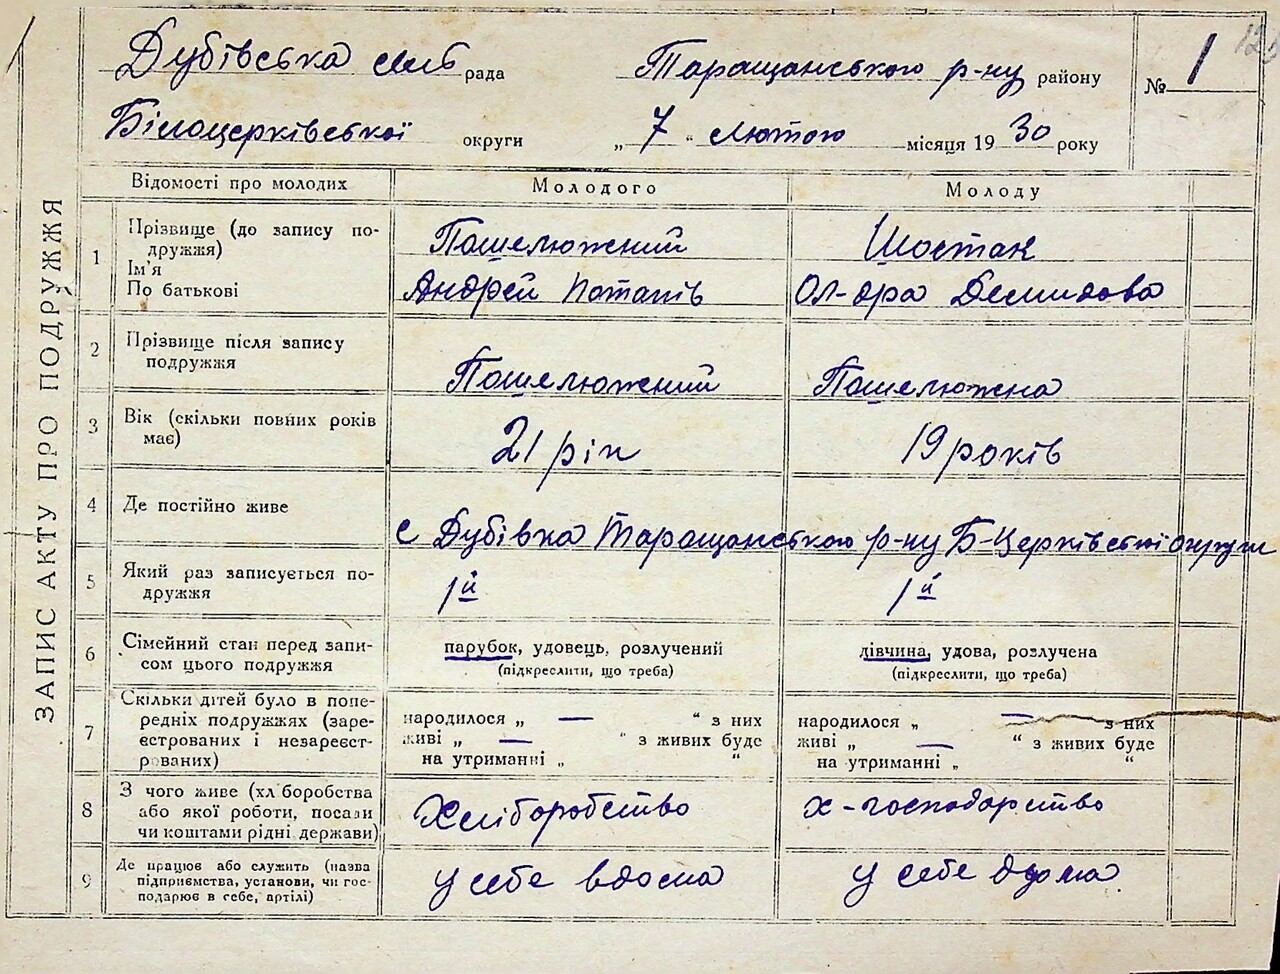 Дубівська сель рада Таращанського р-ну району № 1
Білоцерківської округи „ 7 “ лютого місяця 19 30 року
ЗАПИС АКТУ ПРО ПОДРУЖЖЯ
Відомості про молодих Молодого Молоду
1 Прізвище (до запису по-
дружжя) Пошелюжений Шостак
Ім'я
По батькові Андрей Потапів Ол-дра Демидова
2 Прізвище після запису
подружжя Пошелюжений Пошелюжена
3 Вік (скільки повних років
має) 21 рік 19 років
4 Де постійно живе
с Дубівка Таращанського р-ну Б-Церківської округи
5 Який раз записується по-
дружжя 1й 1й
6 Сімейний стан перед запи- парубок, удовець, розлучений дівчина, удова, розлучена
сом цього подружжя (підкреслити, що треба) (підкреслити, що треба)
7 Скільки дітей було в попе-
редніх подружжях (заре- народилося „ — “ з них народилося „ — з них
єстрованих і незареєст- живі „ — “ з живих буде живі „ — “ з живих буде
рованих) на утриманні „ “ на утриманні „ “
8 З чого живе (хліборобства
або якої роботи, посади Хліборобство х-господарство
чи коштами рідні держави)
9 Де працює або служить (назва
підприємства, установи, чи гос- у себе вдома у себе вдома
подарює в себе, артілі)